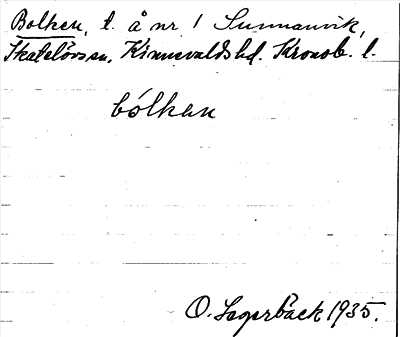 Bolken, t. å nr 1 Sunnanvik,
Skatelövs sn. Kinnevalds hd. Kronob. l.
bólkan
O. Lagerbäck 1935.